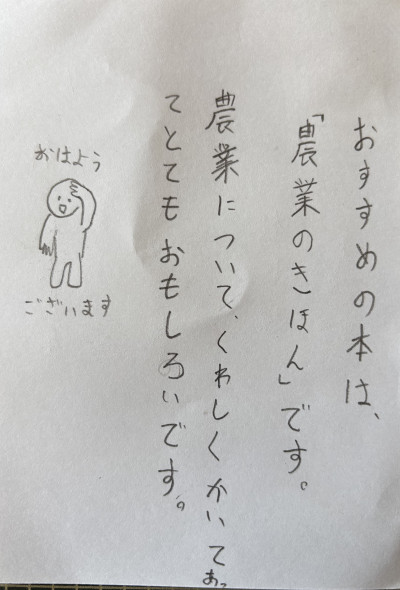 おすすめの本は、
「農業のきほん」です。
農業について、くわしくかいてあっ
てとてもおもしろいです。
おはよう
ございます